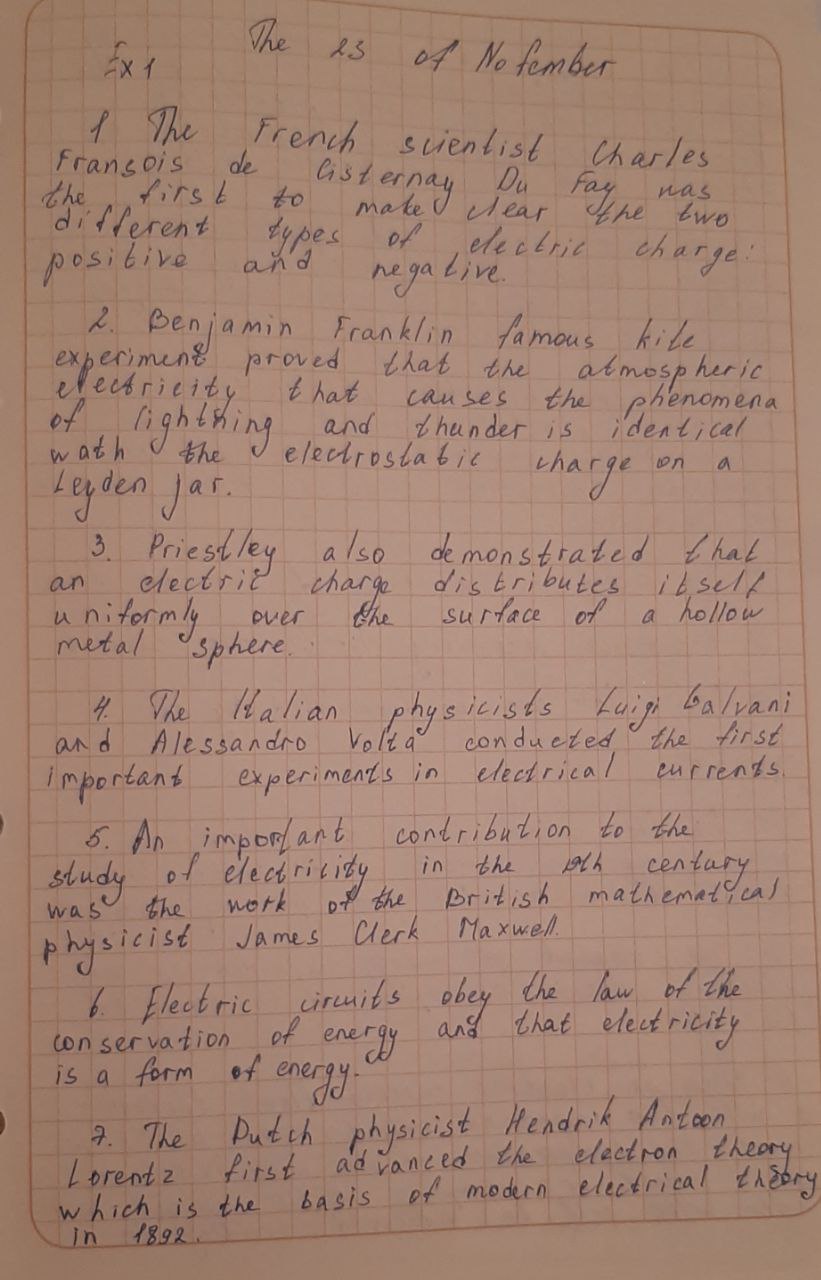 The 23 of Nofember
Ex 1
1 The French scientist Charles
Fransois de Cisternay Du Fay was
the first to make clear the two
different types of electric charge:
positive and negative.
2. Benjamin Franklin famous kite
experiment proved that the atmospheric
electricity that causes the phenomena
of lightning and thunder is identical
wath the electrostatic charge on a
Leyden jar.
3. Priestley also demonstrated that
an electric charge distributes itself
uniformly over the surface of a hollow
metal sphere.
4. The Italian physicists Luigi Galvani
and Alessandro Volta conducted the first
important experiments in electrical currents.
5. An important contribution to the
study of electricity in the 19th century
was the work of the British mathematical
physicist James Clerk Maxwell.
6. Electric circuits obey the law of the
conservation of energy and that electricity
is a form of energy.
7. The Dutch physicist Hendrik Antoon
Lorentz first advanced the electron theory
which is the basis of modern electrical theory
in 1892.